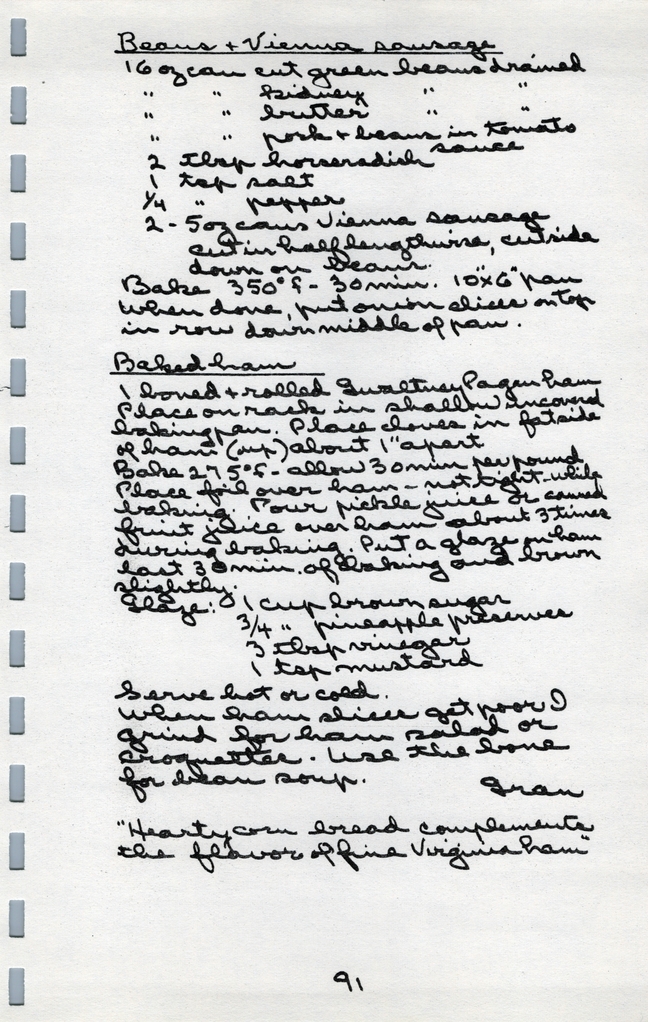 Beans + Vienna sausage
16 oz can cut green beans drained
" " kidney " "
" " butter " "
" " pork + beans in tomato
sauce
2 tbsp horseradish
1 tsp salt
1/4 " pepper
2 - 5 oz cans Vienna sausage
cut in half lengthwise, cut side
down on beans.
Bake 350° f - 30 min. 10"x6" pan
When done, put onion slices on top
in row down middle of pan.
Baked ham
1 boned + rolled Gwaltney Pagan ham
Place on rack in shallow uncovered
baking pan. Place cloves in fat side
of ham (up) about 1" apart
Bake 275° f - allow 30 min per pound
Place foil over ham - not tight - while
baking. Pour pickle juice or canned
fruit juice over ham about 3 times
during baking. Put a glaze on ham
last 30 min. of baking and brown
slightly.
Glaze: 1 cup brown sugar
3/4 " pineapple preserves
3 tbsp vinegar
1 tsp mustard
Serve hot or cold.
When ham slices get poor I
grind for ham salad or
croquettes. Use the bone
for bean soup.
Gran
"Hearty corn bread complements
the flavor of fine Virginia ham"
91